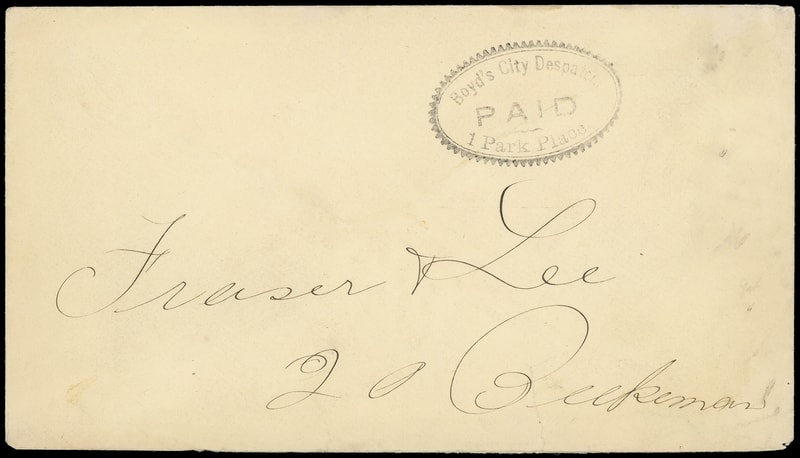 Boyd's City Despatch
PAID
1 Park Place
Fraser & Lee
20 Beekman